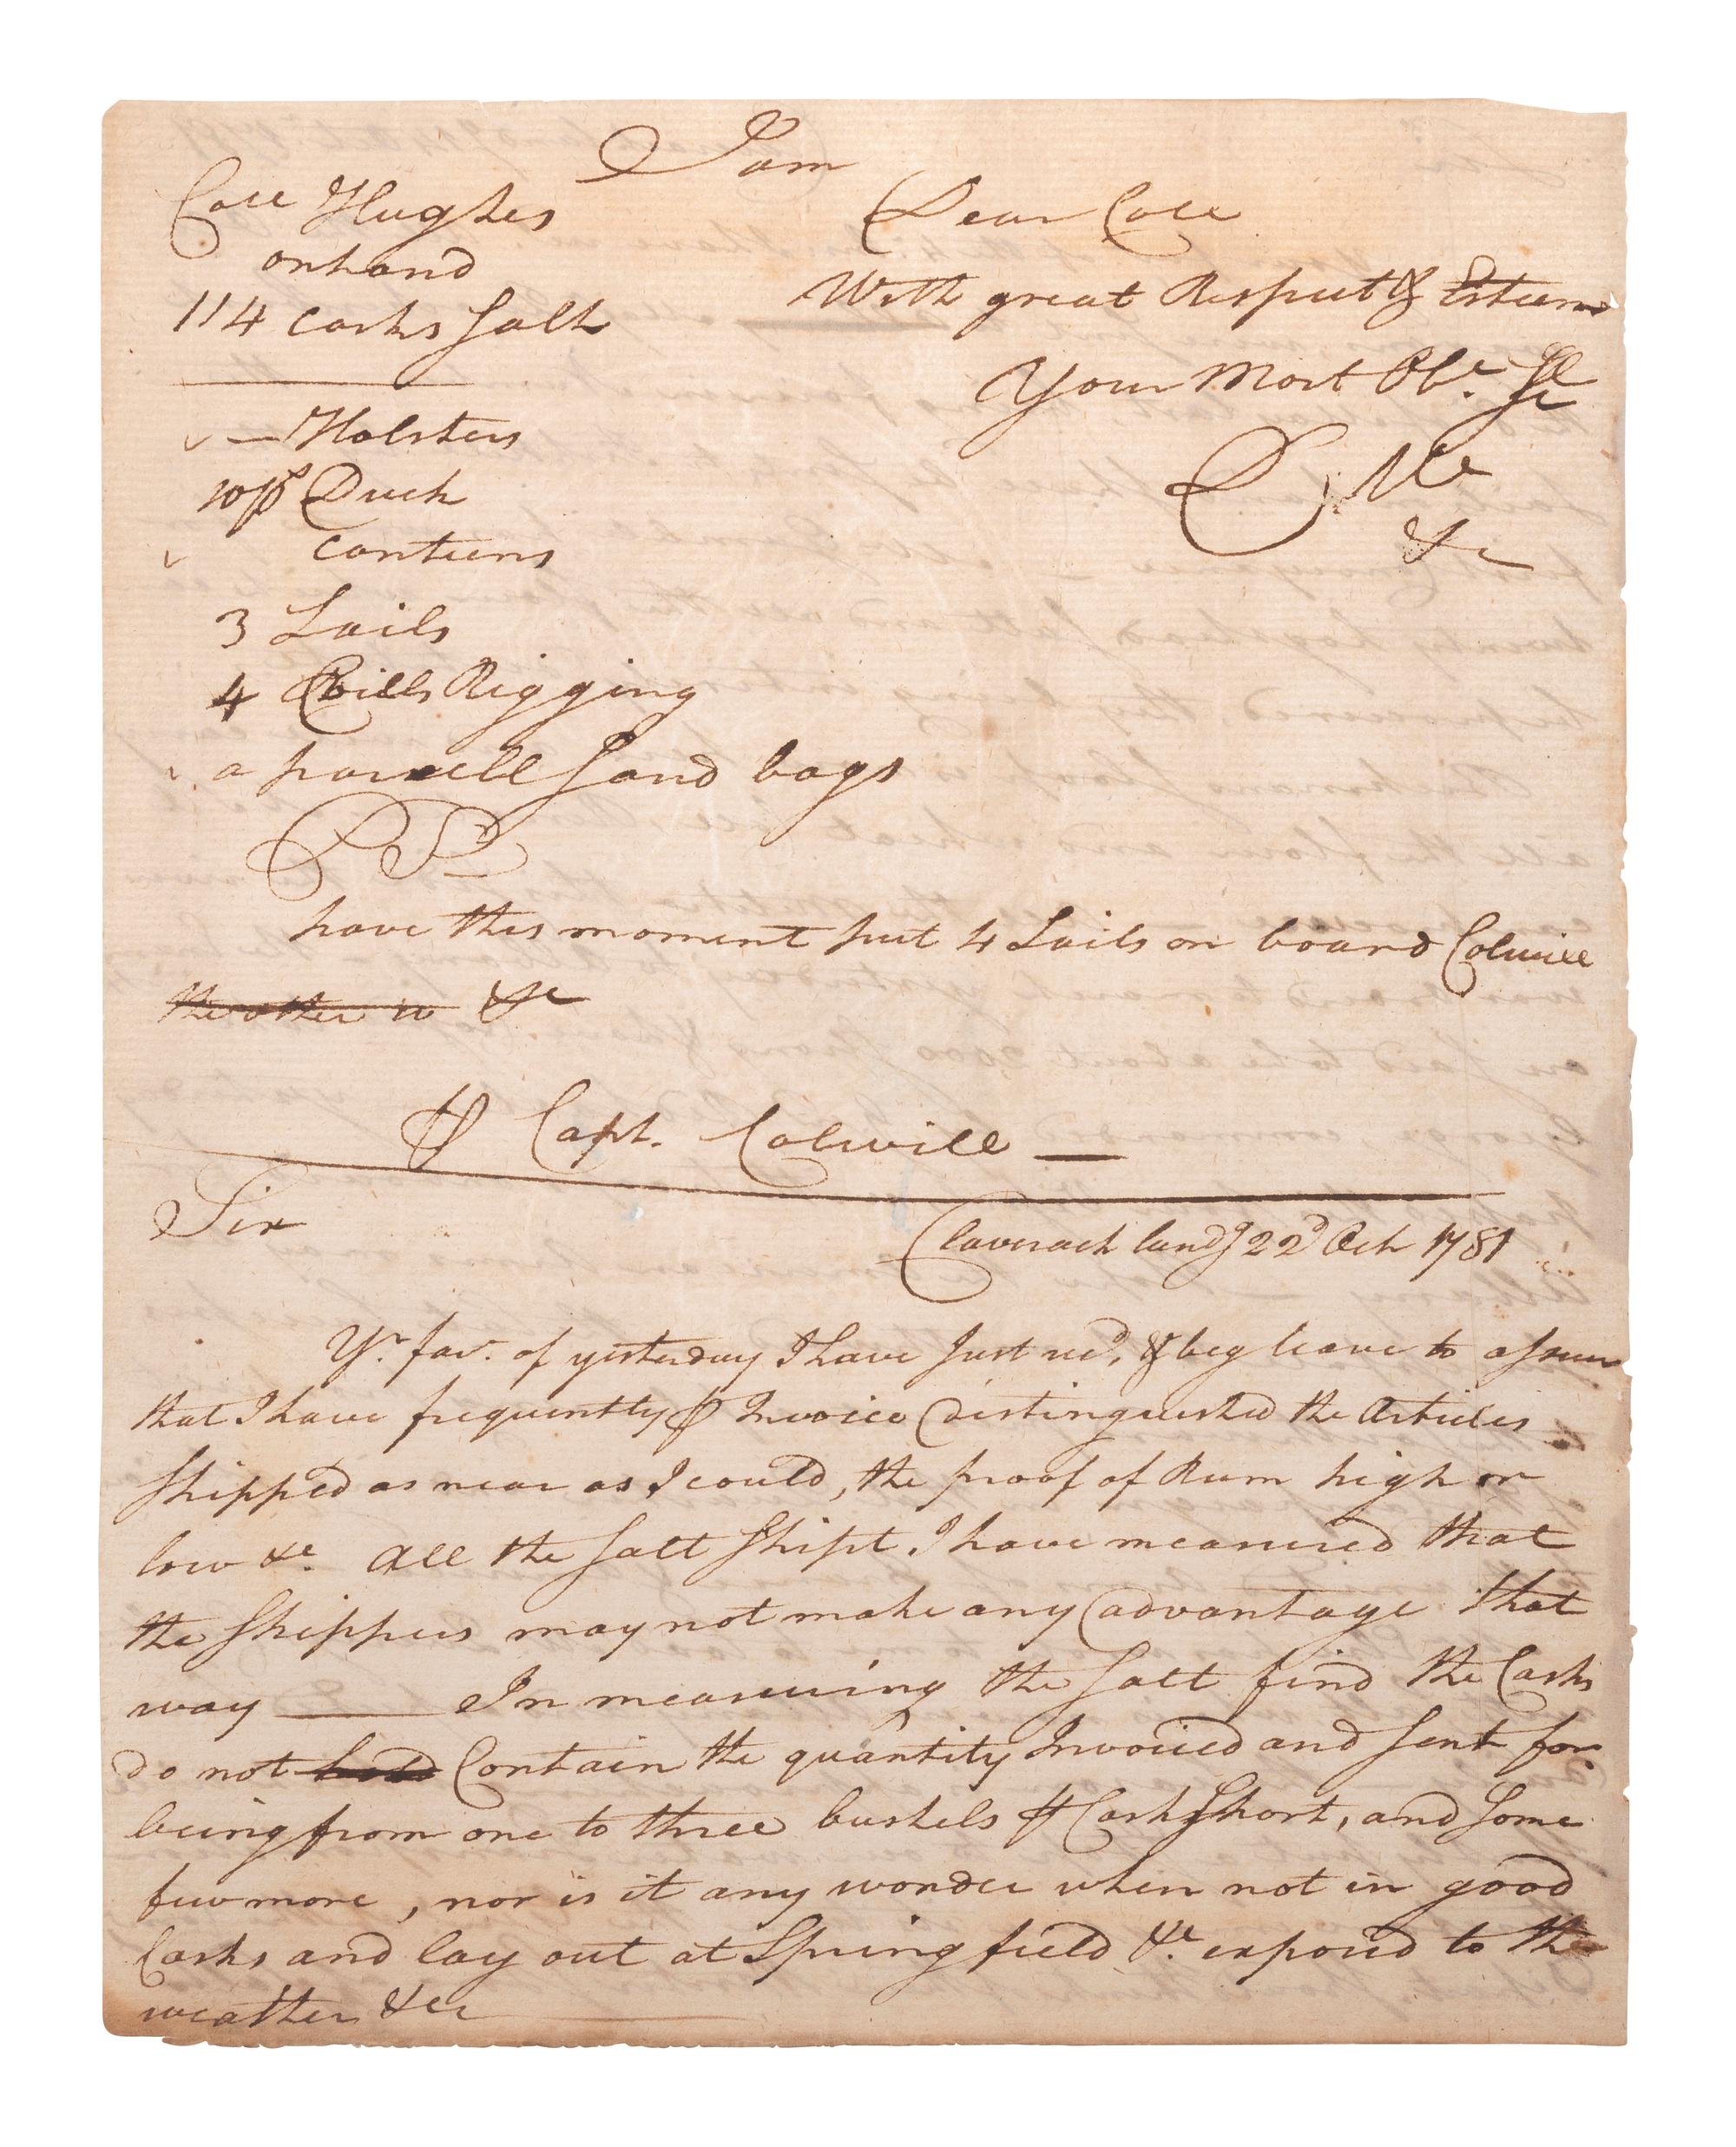 I am
Coll Hughes
Dear Coll
onhand
With great Respect & Esteem
114 Casks Salt
Your Most Obt. St
— Holsters
10 ps Duck
&c
Canteens
3 Sails
4 Coills Rigging
a parcell Sand bags
PS
have this moment put 4 Sails on board Colwill
the other is &c
⅌ Capt. Colwill —
Sir
Claverack landg 22d Oct 1781
Yr. favr. of yesterday I have Just recd. & beg leave to assure
that I have frequently ⅌ Invoice distinguished the Articles
Shipped as near as I could, the proof of Rum high or
low &c. All the Salt Shipt I have measured that
the Shippers may not make any advantage that
way — In measuring the Salt find the Casks
do not hold Contain the quantity Invoiced and Sent for
being from one to three bushels ⅌ Cask Short, and Some
few more, nor is it any wonder when not in good
Casks and lay out at Springfield &c. exposed to the
weather &c